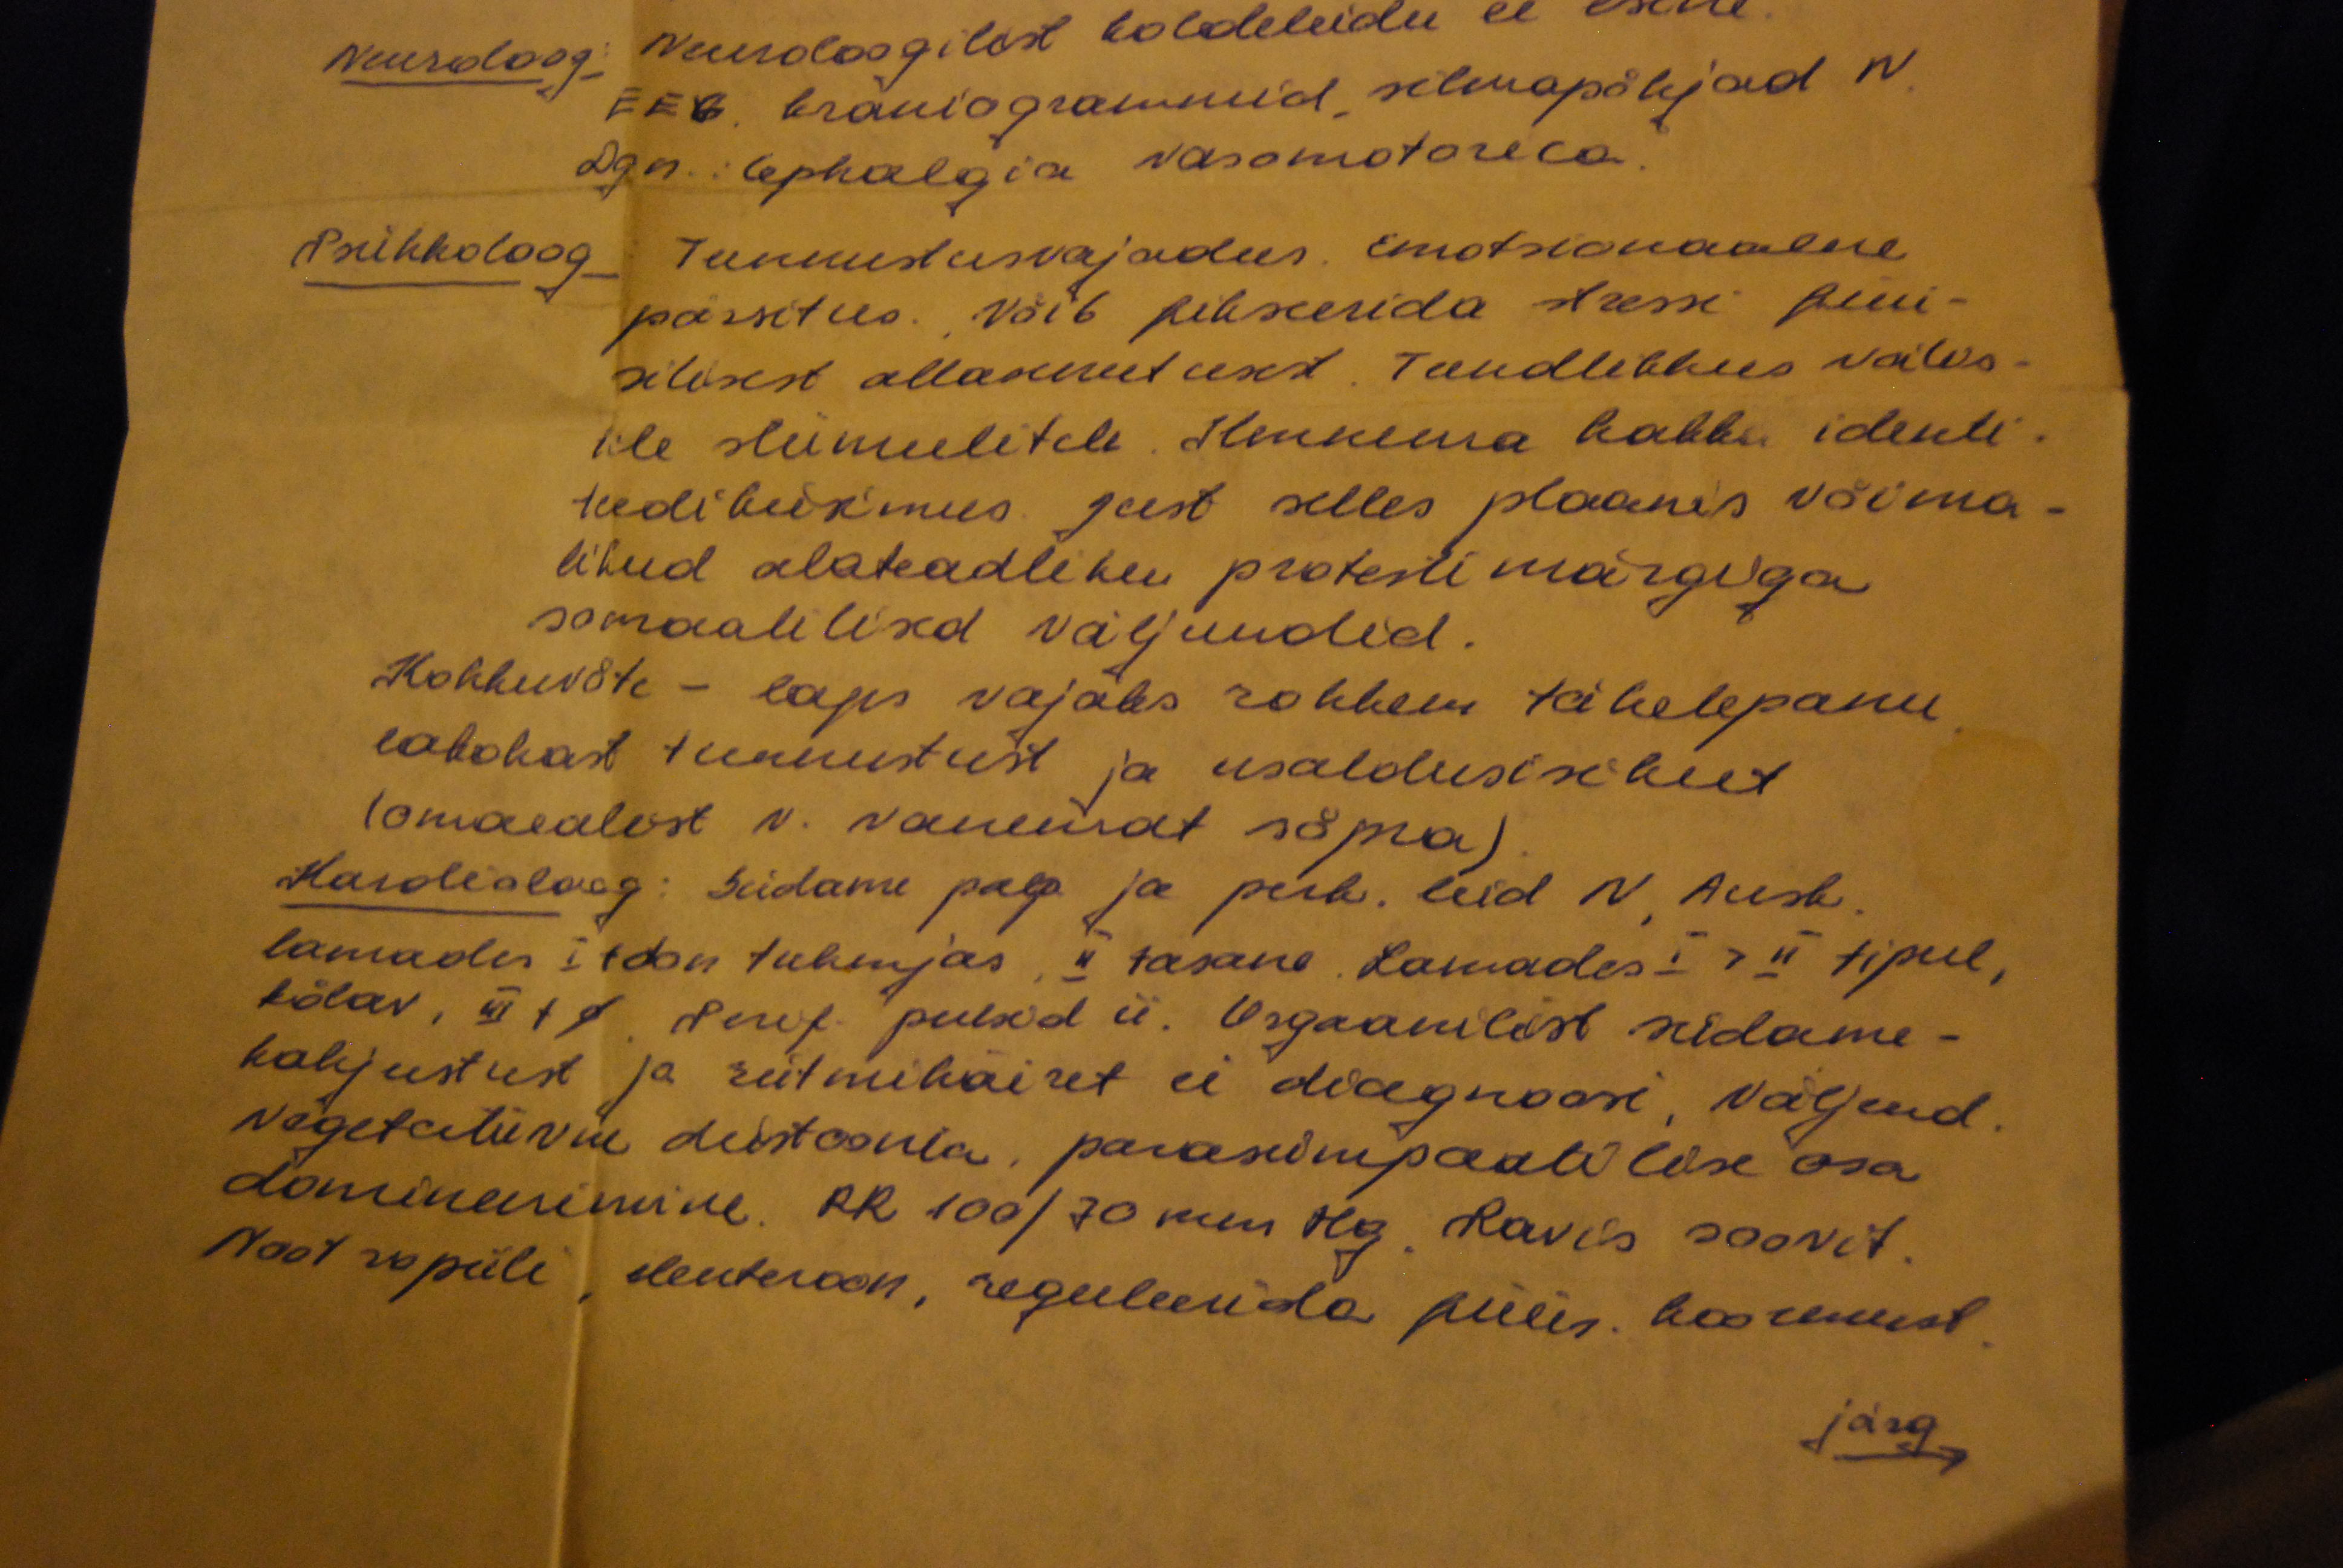 Neuroloog: Neuroloogilist koldeleidu ei esine.
EEG, kraniogrammid, silmapõhjad N.
Dgn.: Cephalgia vasomotorica.
Psühholoog – Tunnustusvajadus. Emotsionaalne
pärsitus. Võib fikseerida stressi füü-
silisest allasurutusest. Tundlikkus välis-
tele stiimulitele. Ilmnema hakkav identi-
teediküsimus. Just selles plaanis võima-
likud alateadliku protestimärgiga
somaatilised väljundid.
Kokkuvõte – laps vajaks rohkem tähelepanu,
rahokast tunnustust ja usaldusisikut
(omaealist v. vanemat sõpra).
Kardioloog: Südame palp ja perk. leid N, Ausk.
lamades I toon tuhmjas, II tasane. Lamades I > II tipul,
kõlav, III t ø. Perif. pulsid ü. Orgaanilist südame-
kahjustust ja rütmihäiret ei diagnoosi, Väljend.
vegetatiivne düstoonia, parasümpaatilise osa
domineerimine. RR 100/70 mm Hg. Ravis soovit.
Nootropiili, eleuterook, reguleerida füüs. koormust.
järg